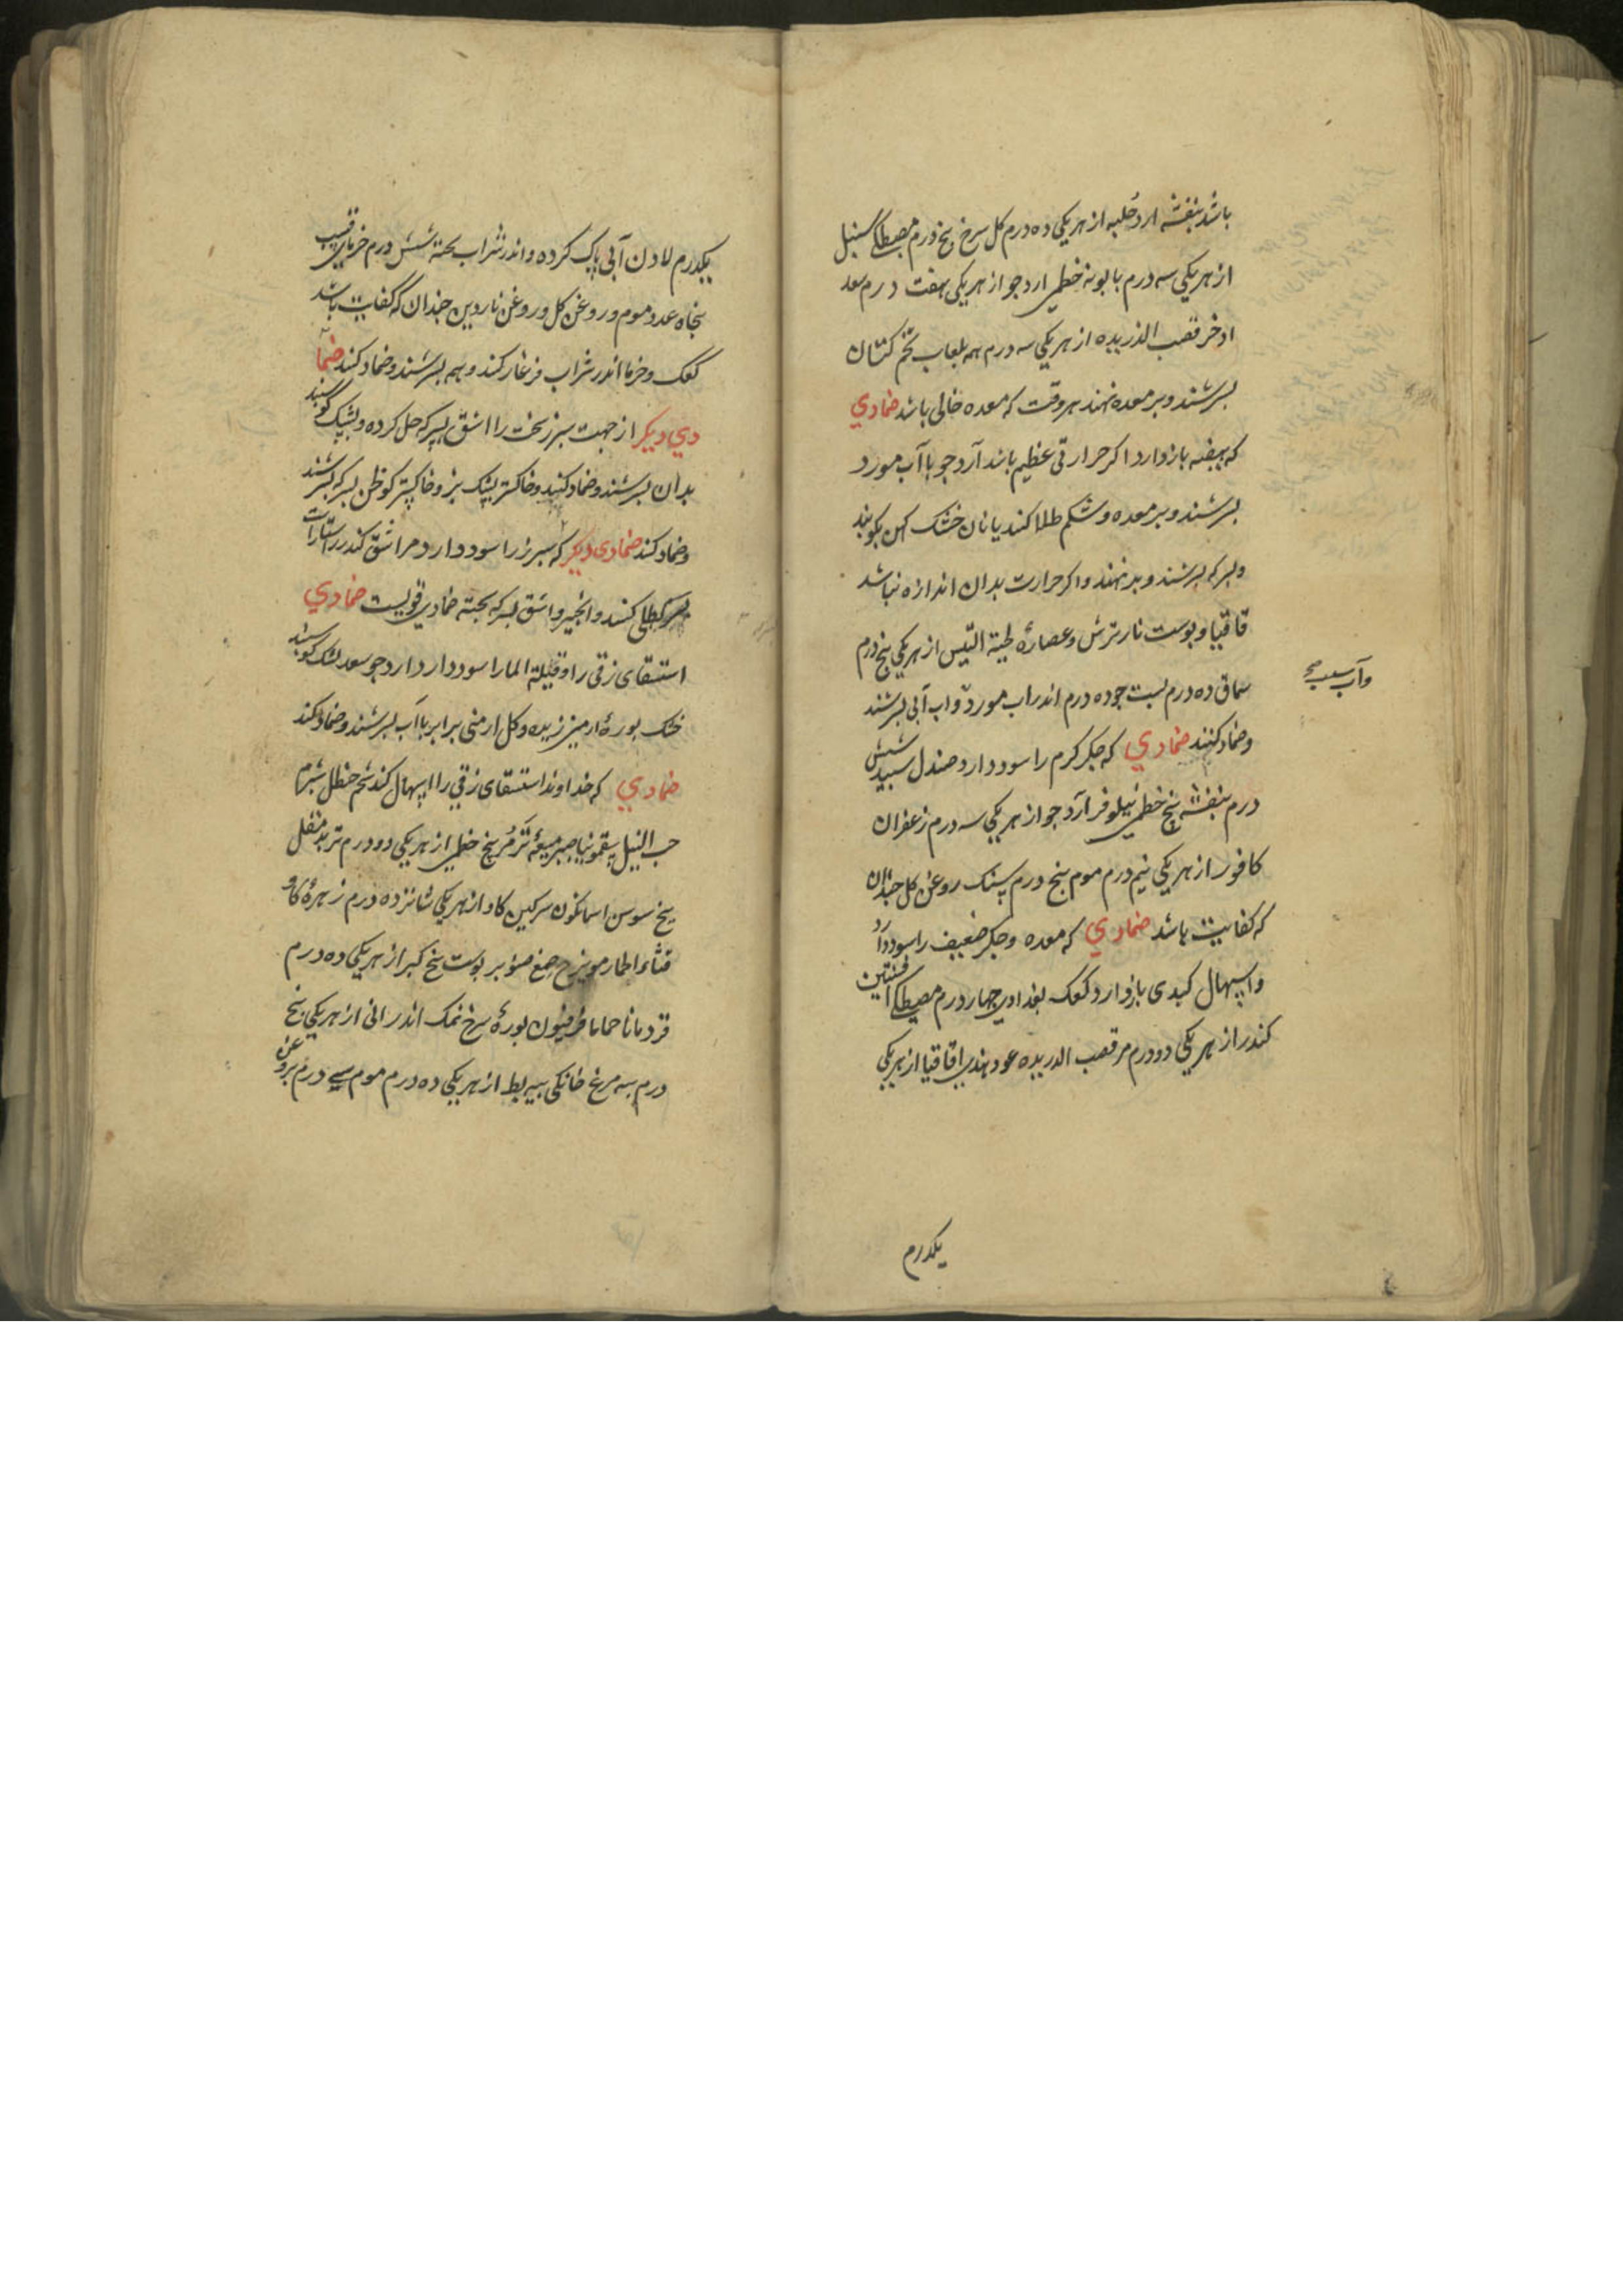 باشد بنفشه ارد حلبه از هر یکی ده درم کل سرخ پنج درم مصطکی سنبل
از هر یکی سه درم بابونه خطمی ارد جو از هر یکی هفت درم سعد
ادخر قصب الذریره از هر یکی سه درم همه بلعاب تخم کتان
بسرشند و بر معده نهند هر وقت که معده خالی باشد ضمادی
که هیضه بازدارد اکر حرارتی عظیم باشد آرد جو با آب مورد
بسرشند و بر معده و شکم طلا کنند یا نان خشک کهن بکوبند
و بسرکه بسرشند و بر نهند و اکر حرارت بدان اندازه نباشد
قاقیا و پوست نار ترش و عصاره لحیة التیس از هر یکی پنج درم
سماق ده درم پست جو ده درم اندر اب مورد و اب آبی بسرشند
وآب سیب صح
و ضماد کنند ضمادی که جکر کرم را سود دارد صندل سپید شش
درم بنفشه بیخ خطمی نیلوفر آرد جو از هر یکی سه درم زعفران
کافور از هر یکی نیم درم موم پنج درم سنک روغن کل جندان
که کفایت باشد ضمادی که معده و جکر ضعیف را سود دارد
و اسهال کبدی بازدارد کعک بغدادی جهار درم مصطکی افسنتین
کندر از هر یکی دو درم مر قصب الدریره عود هندی اقاقیا از هر یکی
یکدرم
یکدرم لادن آبی پاک کرده و اندر شراب پخته شش درم خرمای قسب
پنجاه عدد موم و روغن کل و روغن ناردین جندان که کفایت باشد
کعک و خرما اندر شراب فرغار کنند و بهم بسرشند و ضماد کنند ضما
دی دیکر از جهت سپرز سخت را اشق بسرکه حل کرده و پشک کوسپند
بدان بسرشند و ضماد کنند و خاکستر پشک بز و خاکستر کوظن بسرکه بسرشند
و ضماد کنند ضمادی دیکر که سپرز را سود دارد مر اشق کندر راستاراست
بسرکه طلی کنند و انجیر و اشق بسرکه پخته ضمادی قویست ضمادی
استسقای زقی را و قیلة الما را سود دارد ارد جو سعد پشک کوسپند
خشک بوره ارمنی زیره و کل ارمنی برابر با آب بسرشند و ضماد کنند
ضمادی که خداوند استسقای زقی را اسهال کند شحم حنظل شبرم
حب النیل سقمونیا صبر میعه تر مر بیخ خطمی از هر یکی دو درم تربد مقل
بیخ سوسن اسمانکون سرکین کاو از هر یکی شانزده درم زهره کاو
قثاء الحمار مویزج صمغ صنوبر پوست بیخ کبر از هر یکی ده درم
قردمانا حماما فرفیون بوره سرخ نمک اندرانی از هر یکی پنج
درم پیه مرغ خانکی پیه بط از هر یکی ده درم موم سی درم بروغن